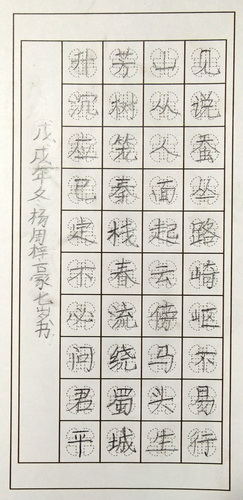 见说蚕丛路崎岖不易行
山丛人面起云傍马头生
芳树笼秦栈春流绕蜀城
升沉应已定不必问君平
戊戌年冬杨周梓豪七岁书